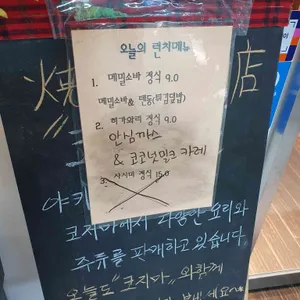 오늘의 런치메뉴
1. 메밀소바 정식 9.0
메밀소바& 텐동(튀김덮밥)
2. 히가와리 정식 9.0
안심까스
& 코코넛밀크 카레
3. 사시미 정식 15.0
焼 店
야키
코지마에서 다양한 요리와
주류를 판매하고 있습니다
오늘도 "코지마"와함께